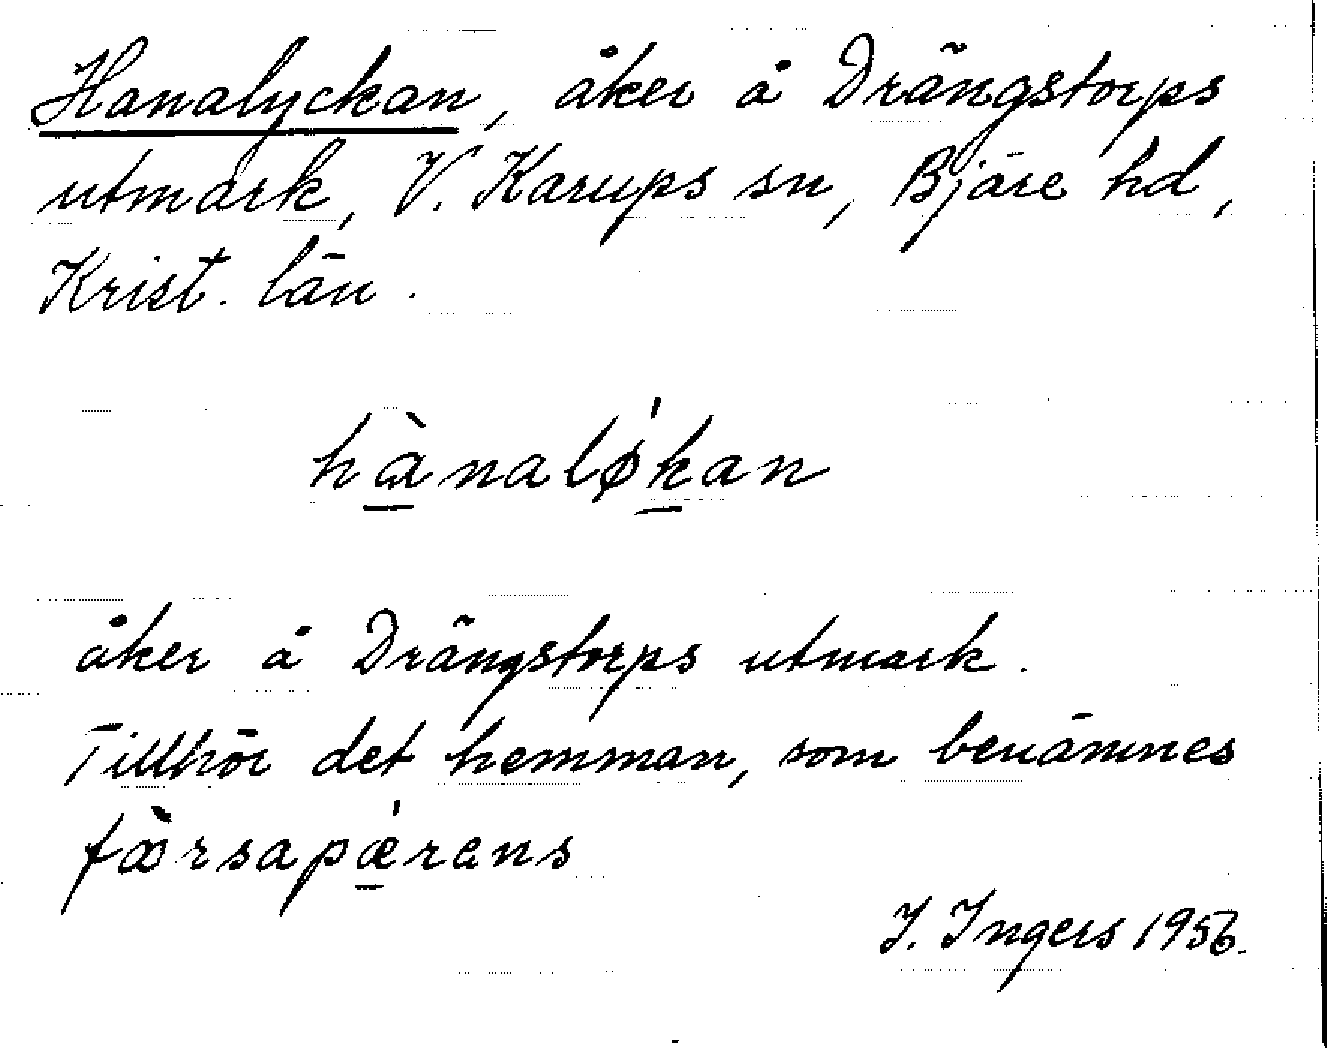 Hanalyckan, åker å Drängstorps
utmark, V. Karups sn, Bjäre hd,
Krist. län.
hànaløkan
åker å Drängstorps utmark.
Tillhör det hemman, som benämnes
fæ̀rsapǽrens
I. Ingers 1956.